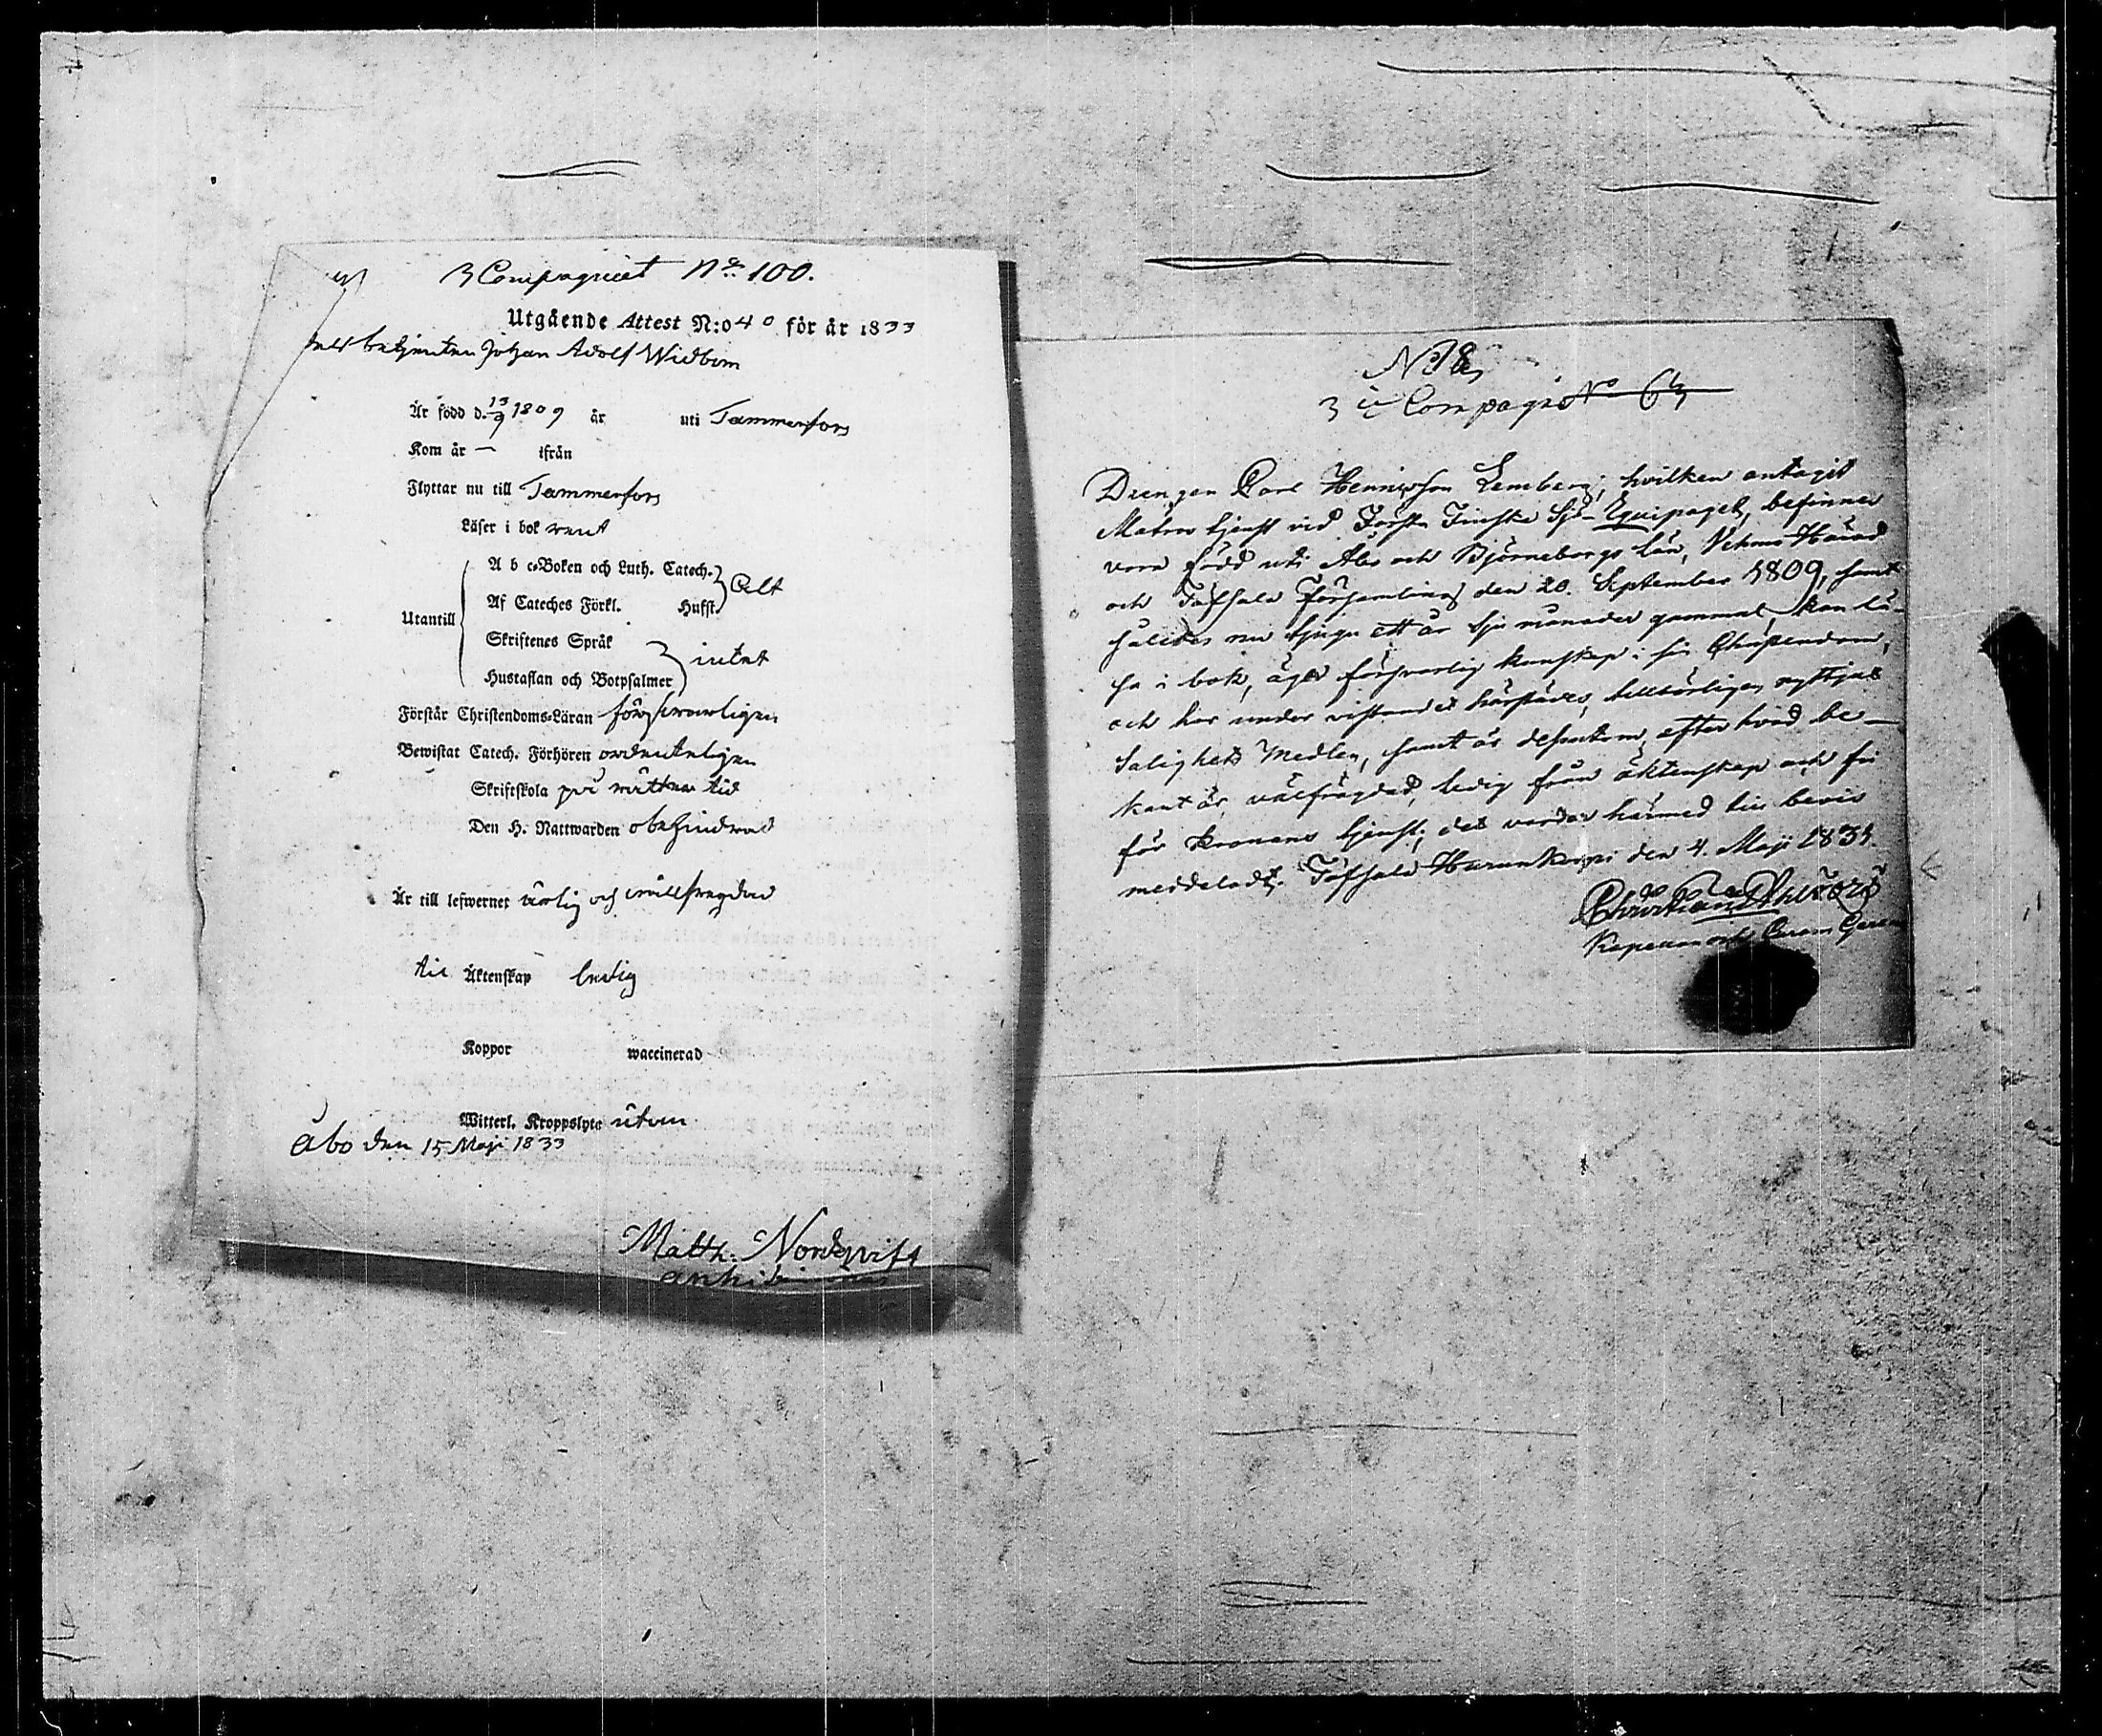 3 Compagniet No 100.
Utgående Attest N:o 40 för år 1833
betjenten Johan Adolf Widbom
Är född d. 13/9 1809 år uti Tammerfors
Kom år — ifrån
Flyttar nu till Tammerfors
Läser i bok rent
A b c-Boken och Luth. Catech.
Af Cateches Förkl. Husst. Alt
Utantill
Skriftenes Språk
Hustaflan och Botpsalmer intet
Förstår Christendoms-Läran försvarligen
Bewistat Catech. Förhören ordenteligen
Skriftskola på rätter tid
Den H. Nattwarden obehindrad
Är till lefwernet ärlig och wällfregdad
till Äktenskap ledig
Koppor waccinerad
Witterl. Kroppslyte utan
Åbo den 15 Maji 1833
Matth: Nordqvist
No 18
3 Compagni No 63
Drengen Carl Henricsson Lemberg, hvilken antagit
Matros tjenst vid Första Finska Sjö-Equipaget, befinnes
vara född uti Åbo och Björneborgs Län, Vehmo Härad
och Töfsala Församling den 20. September 1809, samt
således nu tjugu ett år sju månader gammal, kan lä-
sa i bok, äger försvarlig kunskap i sin Christendom,
och har under vistande härstädes, tillbörligen nyttjat
Salighets Medlen, samt är dessutom, efter hvad be-
kant är, välfrägdad, ledig från äktenskap och fri
för Kronans tjenst; det varder härmed till bevis
meddeladt. Töfsala Hurunkorpi den 4. Maji 1831.
Kapellan och